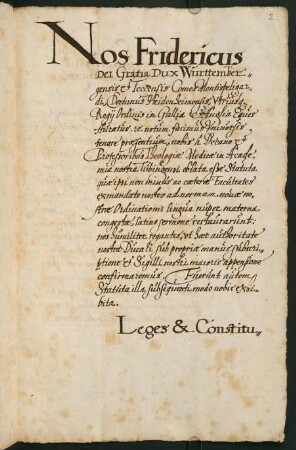 2
Nos Fridericus
Dei Gratia Dux Wurttember-
gensis & Teccensis Comes Montisbeligar-
di, Dominus Heidenheimensis, Utriusq
Regij Ordinis in Gallia & Anglia Eques
notum facimus
tenore praesentium, nobis à Decano &
Professoribus Medicae in Acade-
mia nostra Tubingensi oblata esse Statuta
quae ipsi non minus ac caeterae Facultates
ex mandato nostro ad normam novae no-
strae Ordinationis lingua nuper materna
congestae, latino sermone restaurarint:
nos humiliter rogantes, ut haec authoritate
nostra Ducali sub propriae manus subscri-
ptione & Sigilli nostri maioris appensione
confirmaremus. Fuerunt autem
Statuta illa, subsequenti modo nobis exhi-
bita.
Leges & Constitu-